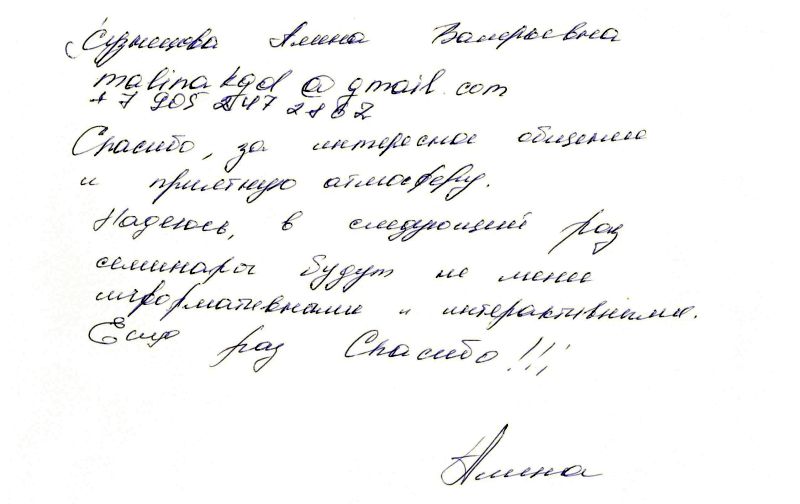 Сузнецова Алина Валерьевна
malinakgd@gmail.com
+7 905 247 2862
Спасибо, за интересное общение
и приятную атмосферу.
Надеюсь, в следующий раз
семинары будут не менее
информативными и интерактивными.
Ещё раз Спасибо!!!
Алина